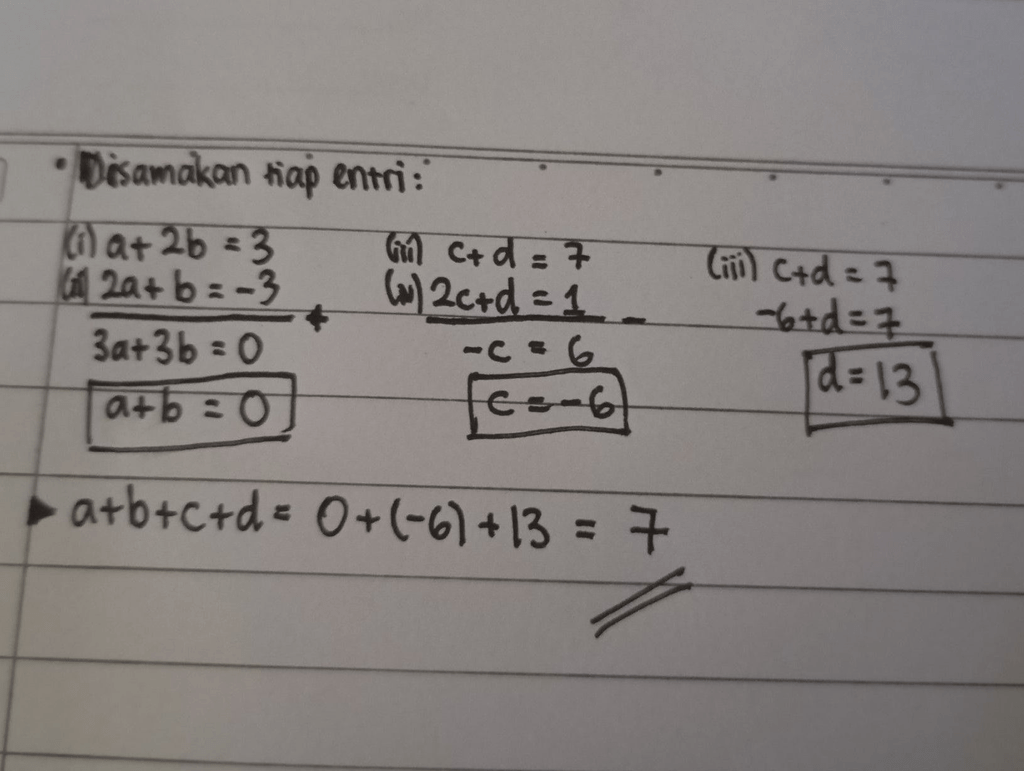 • Disamakan tiap entri:
(i) a + 2b = 3
(ii) 2a + b = -3
+
3a + 3b = 0
a + b = 0
(iii) c + d = 7
(iv) 2c + d = 1
-
-c = 6
c = -6
(iii) c + d = 7
-6 + d = 7
d = 13
▶ a+b+c+d = 0 + (-6) + 13 = 7